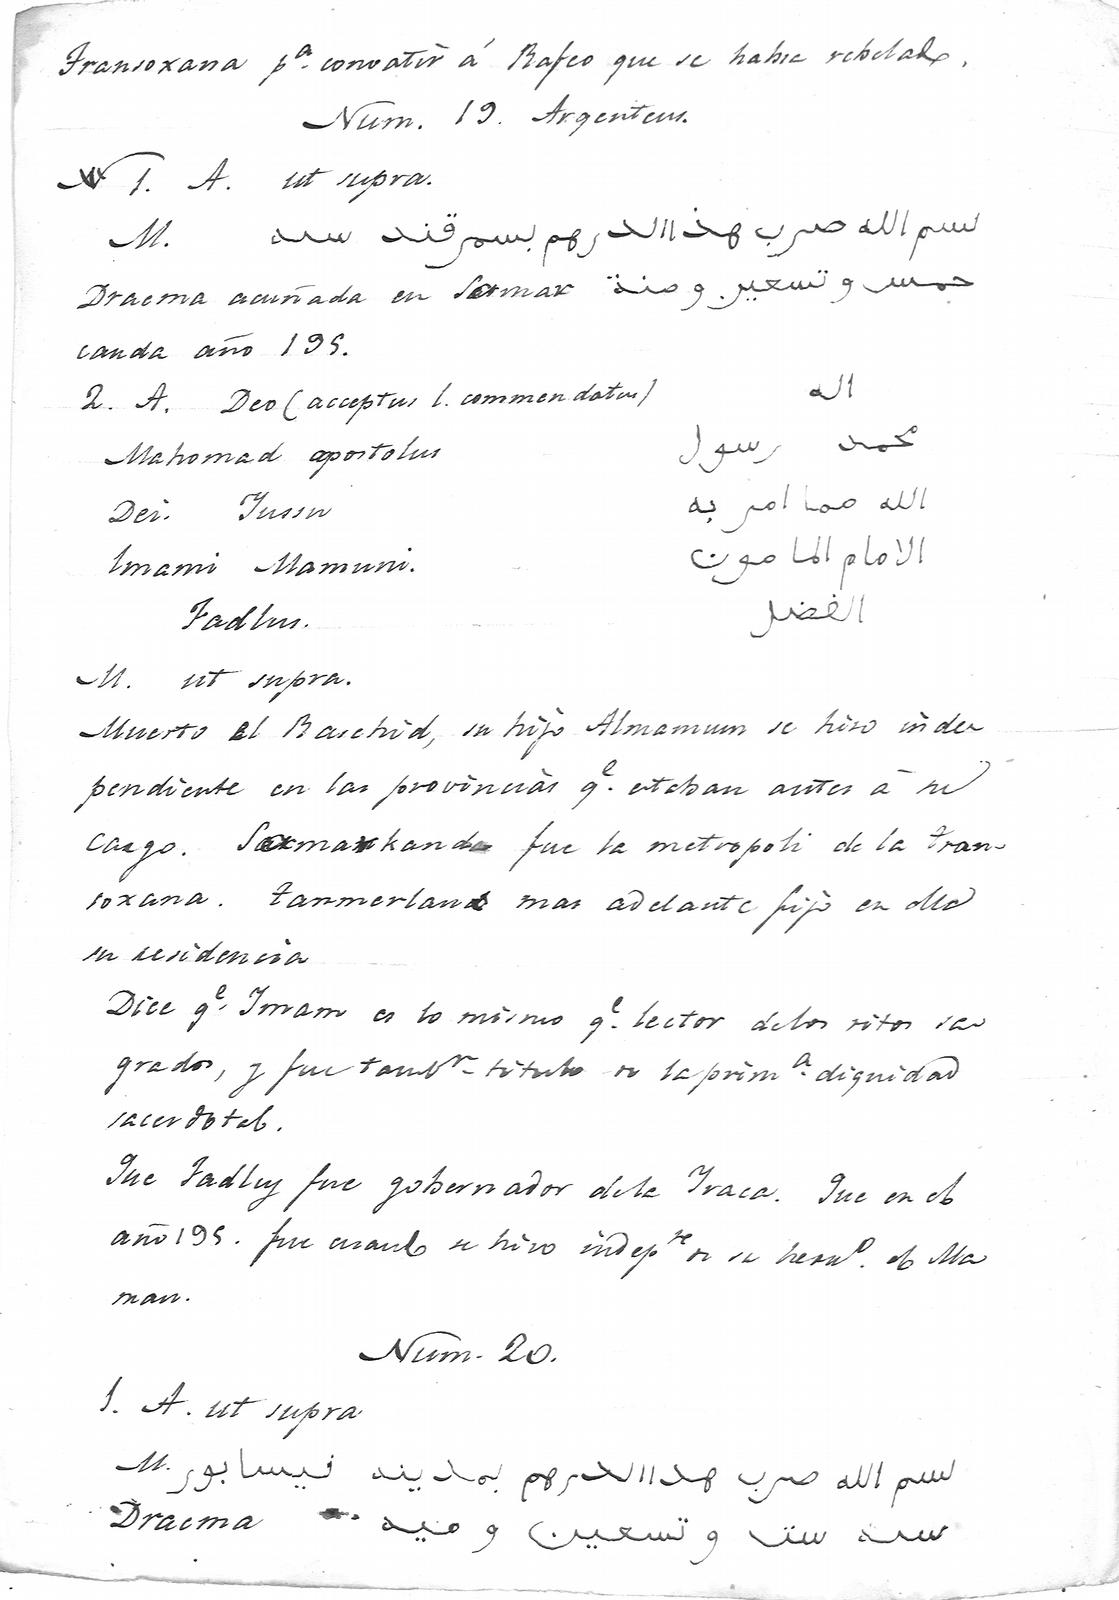 Transoxana pª. convatir á Rafeo que se habia rebelado.
Num. 19. Argenteus.
N 1. A. ut supra.
M. بسم الله صرب هذا الدرهم بسمرقند سنه
Dracma acuñada en Sarmar حمس و تسعين و مئة
canda año 195.
2. A. Deo (acceptus l. commendatus) الله
Mahomad apostolus محمد رسول
Dei. Jussu الله مما امر به
Imami Mamuni. الامام المامون
Fadlus. الفضل
M. ut supra.
Muerto el Raschid, su hijo Almamum se hiso inde
pendiente en las provincias qᵉ. estaban antes á su
cargo. Sarmarkanda fue la metropoli de la tran-
soxana. Tanmerland mas adelante fijó en ella
su residencia
Dice qᵉ. Imam es lo mismo qᵉ. lector delos ritos sa
grados, y fue tambⁿ. titulo de la primª. dignidad
sacerdotal.
Que Fadlus fue gobernador dela Iraca. Que en el
año 195. fue cuando se hiso indepᵗᵉ de su hermº. el Ma
man.
Num. 20.
1. A. ut supra
M. بسم الله صرب هدا الدرهم بمدينه نيسابور
Dracma سنه ست و تسعين و ميه